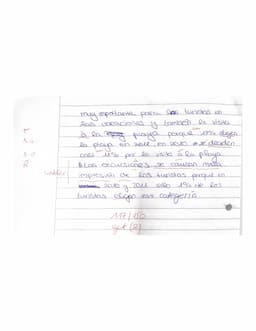 muy importante para los turistas en
las vacaciones y también la visita
á la playa porque eligen
la playa en 2011, en 2010 se deciden
casi 11% por la visita á la playa.
Las excursiones se causan mala
impresión de los turistas porque en
2010 y 2011 sólo 1% de los
turistas eligen esa categoría.
117/150
gut (2)